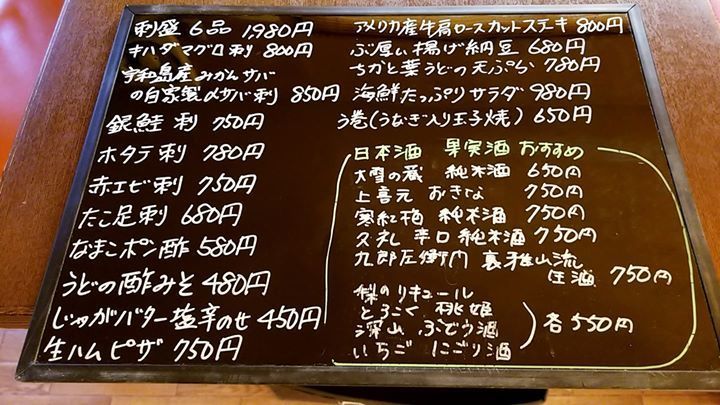 刺盛 6品 1,980円
キハダマグロ刺 800円
宇和島産みかんサバ
の自家製〆サバ刺 850円
銀鮭刺 750円
ホタテ刺 780円
赤エビ刺 750円
たこ足刺 680円
なまこポン酢 580円
うどの酢みそ 480円
じゃがバター塩辛のせ 450円
生ハムピザ 750円
アメリカ産牛肩ロースカットステキ 800円
ぶ厚い揚げ納豆 680円
ちかと葉うどの天ぷら 780円
海鮮たっぷりサラダ 980円
う巻(うなぎ入り玉子焼) 650円
日本酒 果実酒 おすすめ
大雪の蔵 純米酒 650円
上喜元 おきな 750円
寒紅梅 純米酒 750円
久礼 辛口 純米酒 750円
九郎左衛門 裏雅山流
生酒 750円
梨のリキュール
とろこく 桃姫
深山 ぶどう酒
いちご にごり酒
各550円